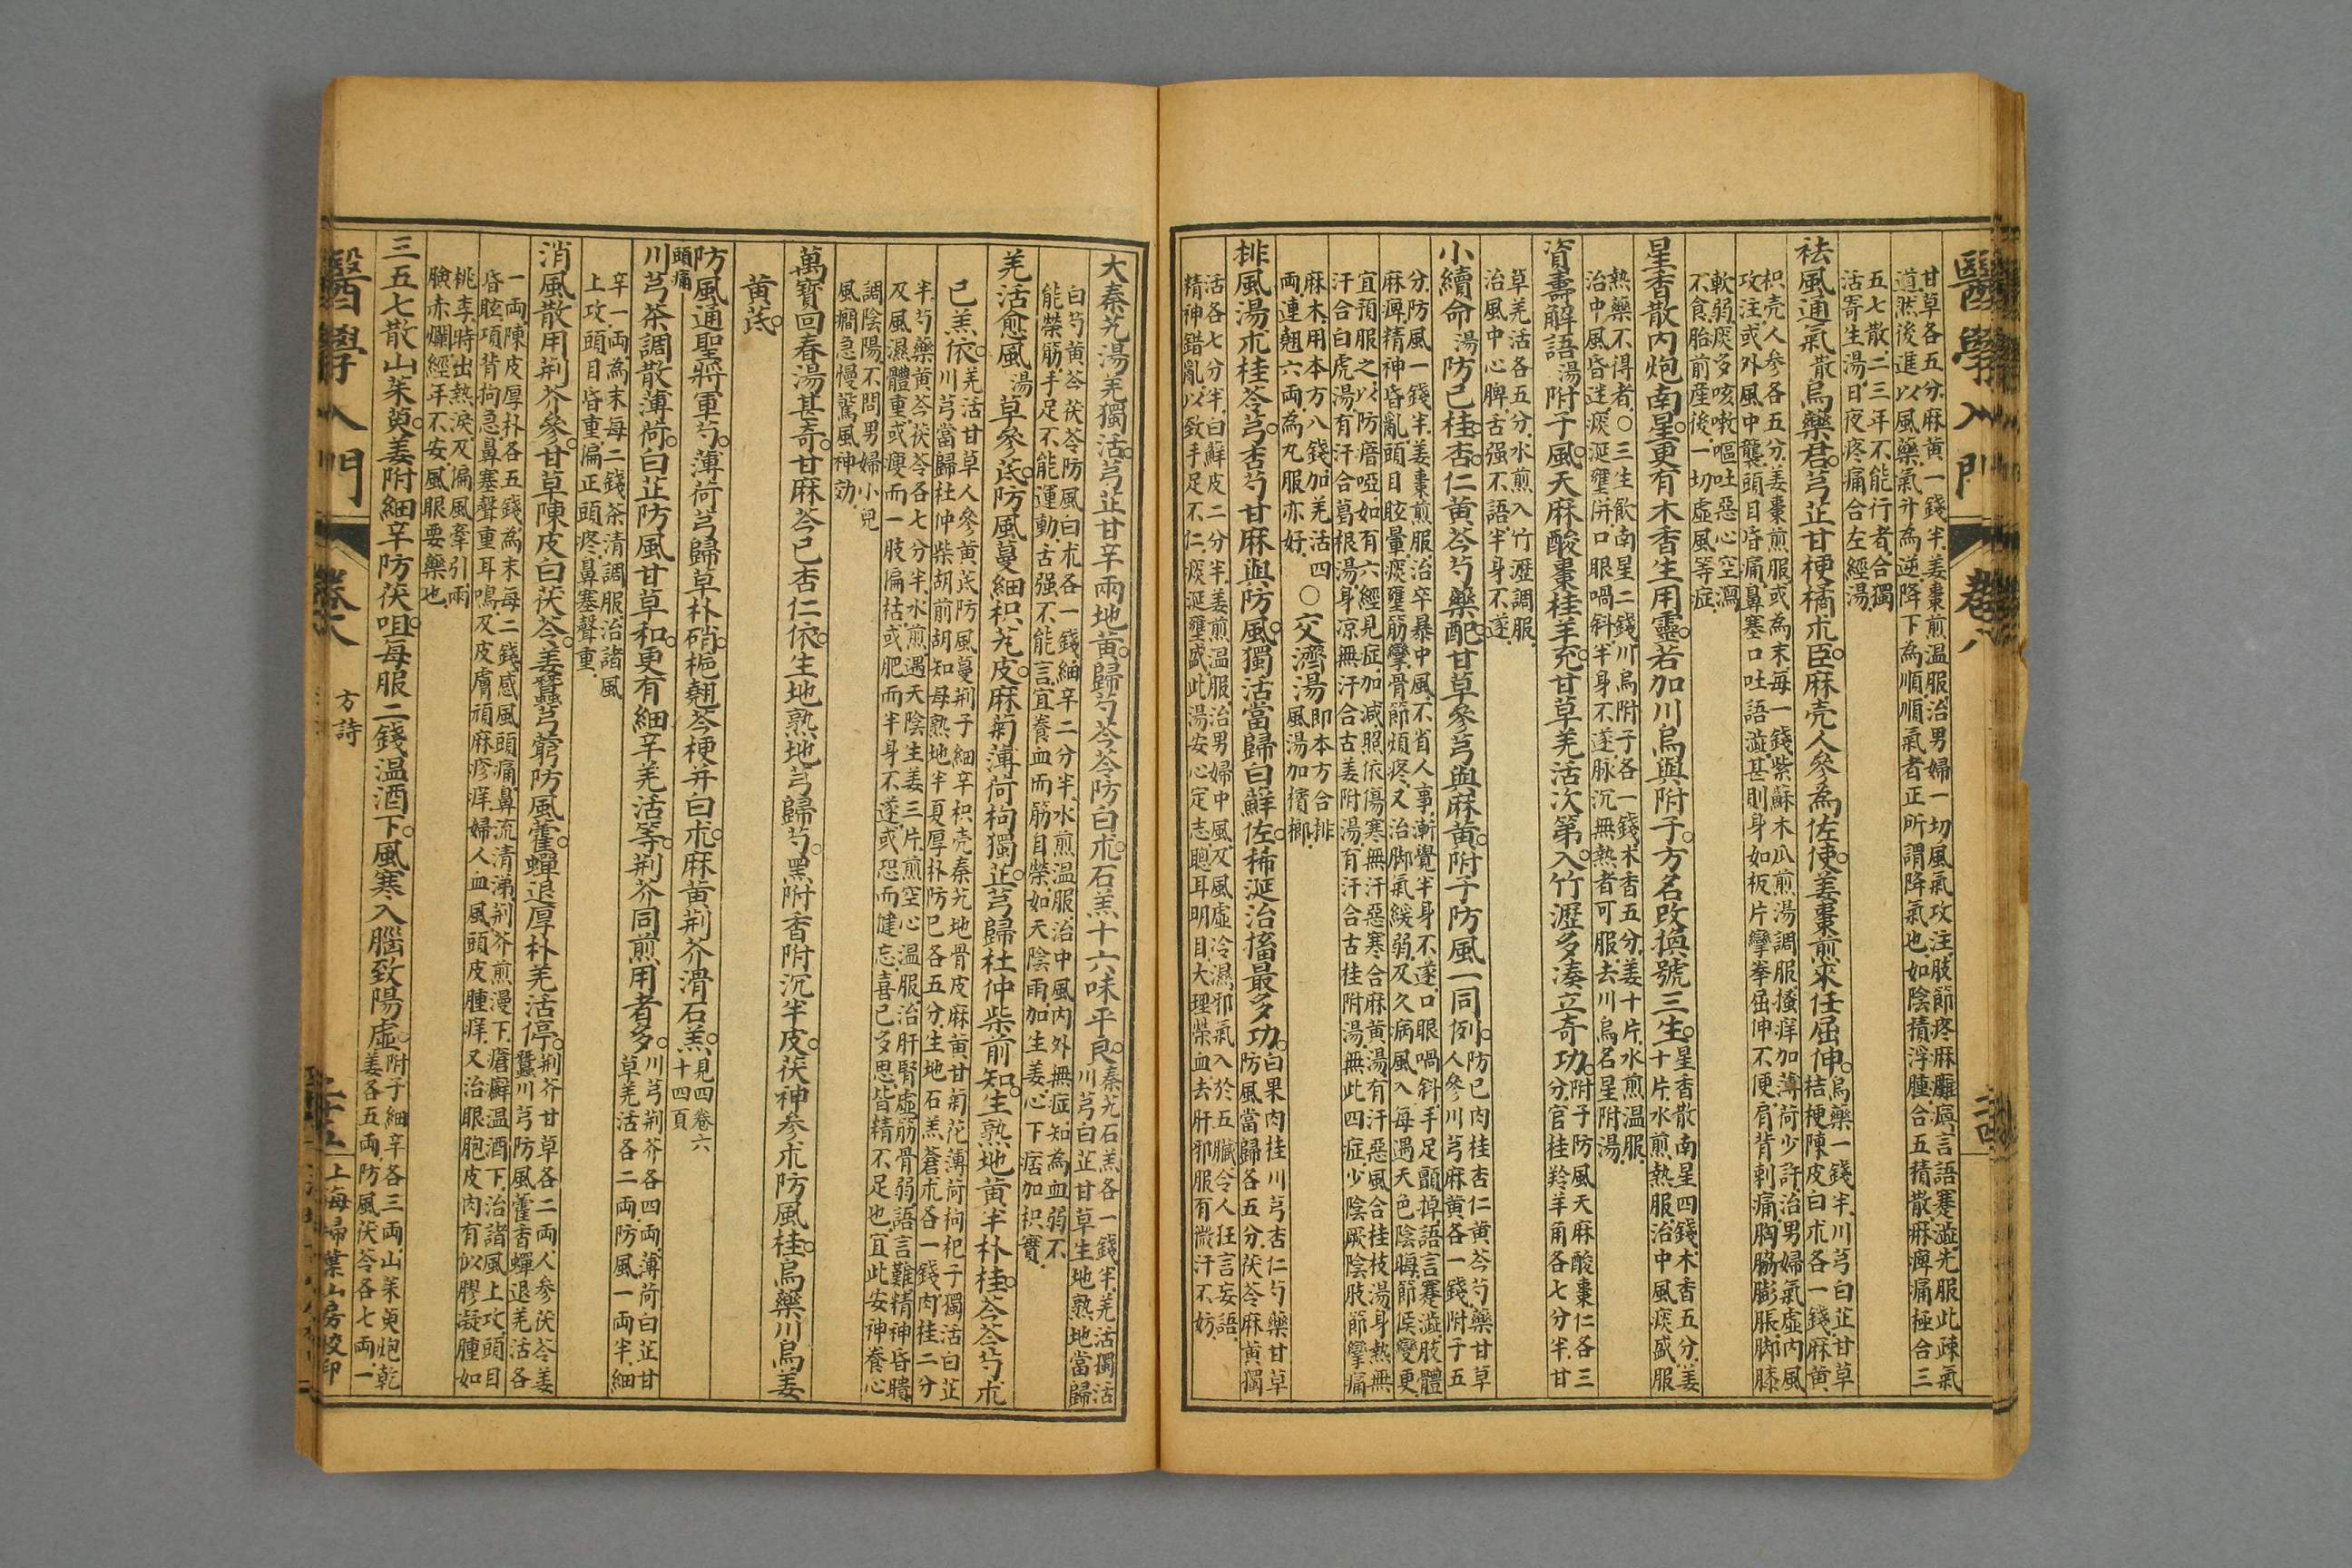 醫學入門 卷八 二十四
甘草各五分.麻黃一錢半.姜棗煎溫服.治男婦一切風氣攻注.肢節疼麻癱瘓.言語蹇澁.先服此疎氣
道.然後進以風藥.氣升為逆.降下為順.順氣者正所謂降氣也.如陰積浮腫.合五積散.麻痺痛極.合三
五七散.二三年不能行者.合獨
活寄生湯.日夜疼痛.合左經湯.
祛風通氣散烏藥君.芎芷甘梗橘朮臣.麻壳人參為佐使.姜棗煎來任屈伸.
烏藥一錢半.川芎白芷甘草
桔梗陳皮白朮各一錢.麻黃
枳壳人參各五分.姜棗煎服.或為末.每一錢.紫蘇木瓜煎湯調服.搔痒加薄荷少許.治男婦氣虛.內風
攻注.或外風中襲.頭目昏痛.鼻塞口吐.語澁.甚則身如板片.攣拳屈伸不便.肩背刺痛.胸脇膨脹.脚膝
軟弱.痰多咳嗽.嘔吐惡心.空瀉
不食.胎前產後.一切虛風等症.
星香散內炮南星.更有木香生用靈.若加川烏與附子.方名改換號三生.
星香散南星四錢.木香五分.姜
十片.水煎熱服.治中風痰盛.服
熱藥不得者.○三生飲南星二錢.川烏附子各一錢.木香五分.姜十片.水煎溫服.
治中風昏迷.痰涎壅併.口眼喎斜.半身不遂.脉沉無熱者可服.去川烏名星附湯.
資壽解語湯附子.風天麻酸棗桂羊充.甘草羌活次第入.竹瀝多凑立奇功.
附子防風天麻酸棗仁各三
分.官桂羚羊角各七分半.甘
草羌活各五分.水煎入竹瀝調服.
治風中心脾.舌强不語.半身不遂.
小續命湯防己桂.杏仁黃芩芍藥配.甘草參芎與麻黃.附子防風一同例.
防己肉桂杏仁黃芩芍藥甘草
人參川芎麻黃各一錢.附子五
分.防風一錢半.姜棗煎服.治卒暴中風.不省人事.漸覺半身不遂.口眼喎斜.手足顫掉.語言蹇澁.肢體
麻痺.精神昏亂.頭目眩暈.痰壅筋攣.骨節煩疼.又治脚氣緩弱.及久病風入.每遇天色陰晦.節候變更
宜預服之.以防瘖啞.如有六經見症加減.照依傷寒.無汗惡寒.合麻黃湯.有汗惡風.合桂枝湯.身熱無
汗.合白虎湯.有汗合葛根湯.身凉無汗.合古姜附湯.有汗合古桂附湯.無此四症.少陰厥陰肢節攣痛
麻木.用本方八錢.加羌活四
兩.連翹六兩.為丸服亦好.
○交濟湯
即本方合排
風湯.加檳榔.
排風湯朮桂苓芎.杏芍甘麻與防風.獨活當歸白蘚佐.稀涎治搐最多功.
白果肉桂川芎杏仁芍藥甘草
防風當歸各五分.茯苓麻黃獨
活各七分半.白鮮皮二分半.姜煎溫服.治男婦中風.及風虛冷濕.邪氣入於五臟.令人狂言妄語.
精神錯亂.以致手足不仁.痰涎壅盛.此湯安心定志.聰耳明目.大理榮血.去肝邪.服有微汗不妨.
大秦艽湯羌獨活.芎芷甘辛兩地黃.歸芍芩苓防白朮.石羔十六味平良.
秦艽石羔各一錢半.羌活獨活
川芎白芷甘草生地熟地當歸
白芍黃芩茯苓防風白朮各一錢.細辛二分半.水煎溫服.治中風內外無症.知為血弱不
能榮筋.手足不能運動.舌强不能言.宜養血而筋自榮.如天陰雨.加生姜.心下痞.加枳實.
羌活愈風湯草參芪.防風蔓細枳艽皮.麻菊薄荷枸獨芷.芎歸杜仲柴前知.生熟地黃半朴桂.芩苓芍朮
已羔依.
羌活甘草人參黃芪防風蔓荊子細辛枳壳秦艽地骨皮麻黃甘菊花薄荷枸杞子獨活白芷
川芎當歸杜仲柴胡前胡知母熟地半夏厚朴防己各五分.生地石羔蒼朮各一錢.肉桂二分
半.芍藥黃芩茯苓各七分半.水煎.遇天陰生姜三片煎.空心溫服.治肝腎虛.筋骨弱.語言難.精神昏聵
及風濕體重.或瘦而一肢偏枯.或肥而半身不遂.或恐而健忘.喜已多思.皆精不足也.宜此安神養心
調陰陽.不問男婦小兒
風癇急慢驚風神効.
萬寶回春湯甚奇.甘麻芩已杏仁依.生地熟地芎歸芍.黑附香附沉半皮.茯神參朮防風桂.烏藥川烏姜
黃芪.
頭痛
防風通聖將軍芍.薄荷芎歸草朴硝.梔翹芩梗并白朮.麻黃荊芥滑石羔.
見四卷六
十四頁
川芎茶調散薄荷.白芷防風甘草和.更有細辛羌活等.荊芥同煎用者多.
川芎荊芥各四兩.薄荷白芷甘
草羌活各二兩.防風一兩半.細
辛一兩.為末.每二錢.茶清調服.治諸風
上攻.頭目昏重.偏正頭疼.鼻塞聲重.
消風散用荊芥參.甘草陳皮白茯苓.姜蠶芎藭防風藿.蟬退厚朴羌活停.
荊芥甘草各二兩.人參茯苓姜
蠶川芎防風藿香蟬退羌活各
一兩.陳皮厚朴各五錢.為末.每二錢.感風頭痛.鼻流清涕.荊芥煎湯下.瘡癬溫酒下.治諸風上攻.頭目
昏眩.項背拘急.鼻塞聲重.耳鳴.及皮膚頑麻疹痒.婦人血風.頭皮腫痒.又治眼胞皮肉.有似膠凝.腫如
桃李.時出熱淚.及偏風牽引.兩
臉赤爛.經年不安.風服要藥也.
三五七散山茱萸.姜附細辛防茯咀.每服二錢溫酒下.風寒入腦致陽虛.
附子細辛各三兩.山茱萸炮乾
姜各五兩.防風茯苓各七兩.一
醫學入門 卷八 方詩 二十五 上海埽葉山房校印